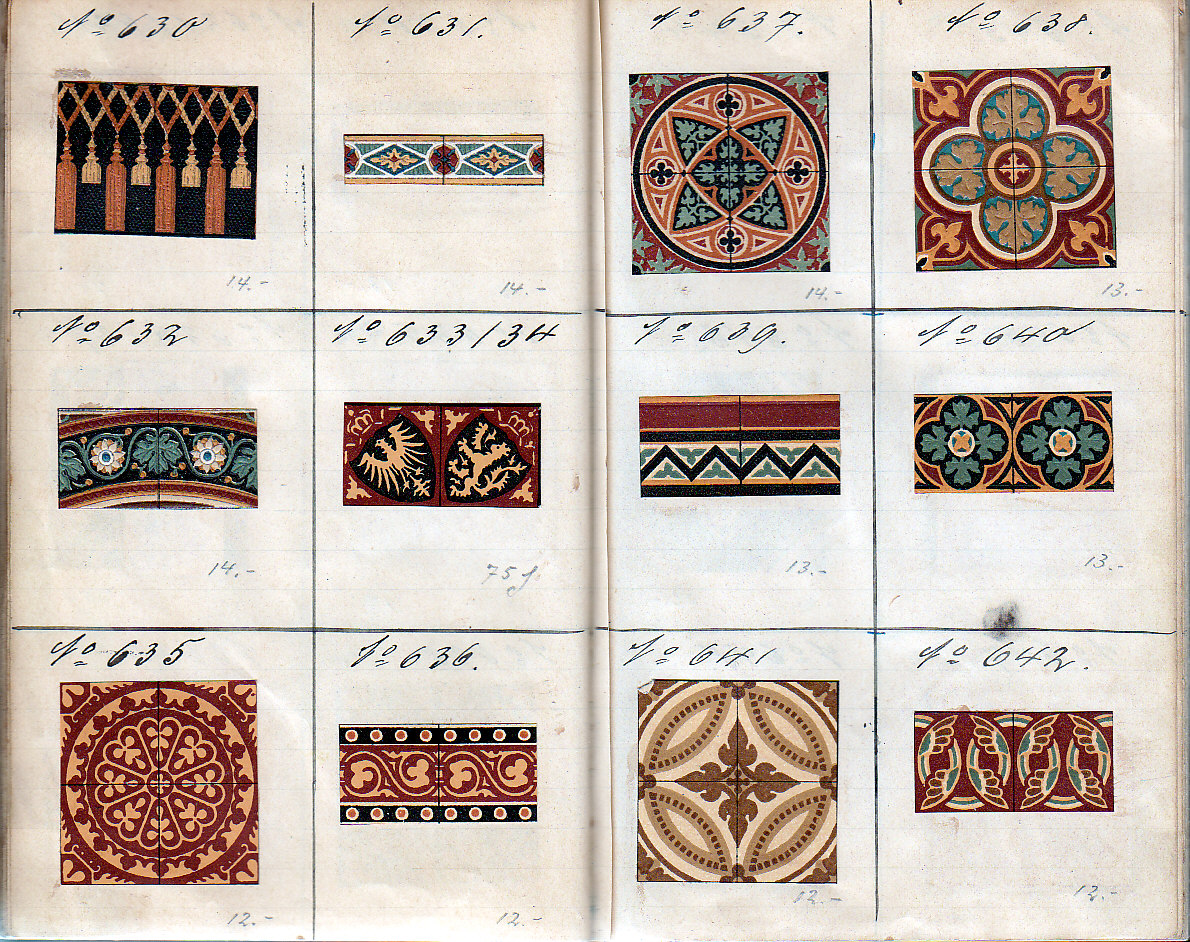 Nº 630
14.-
Nº 631.
14.-
Nº 632
14.-
Nº 633/34
75 f.
Nº 635
12.-
Nº 636.
12.-
Nº 637.
14.-
Nº 638.
13.-
Nº 639.
13.-
Nº 640
13.-
Nº 641
12.-
Nº 642.
12.-